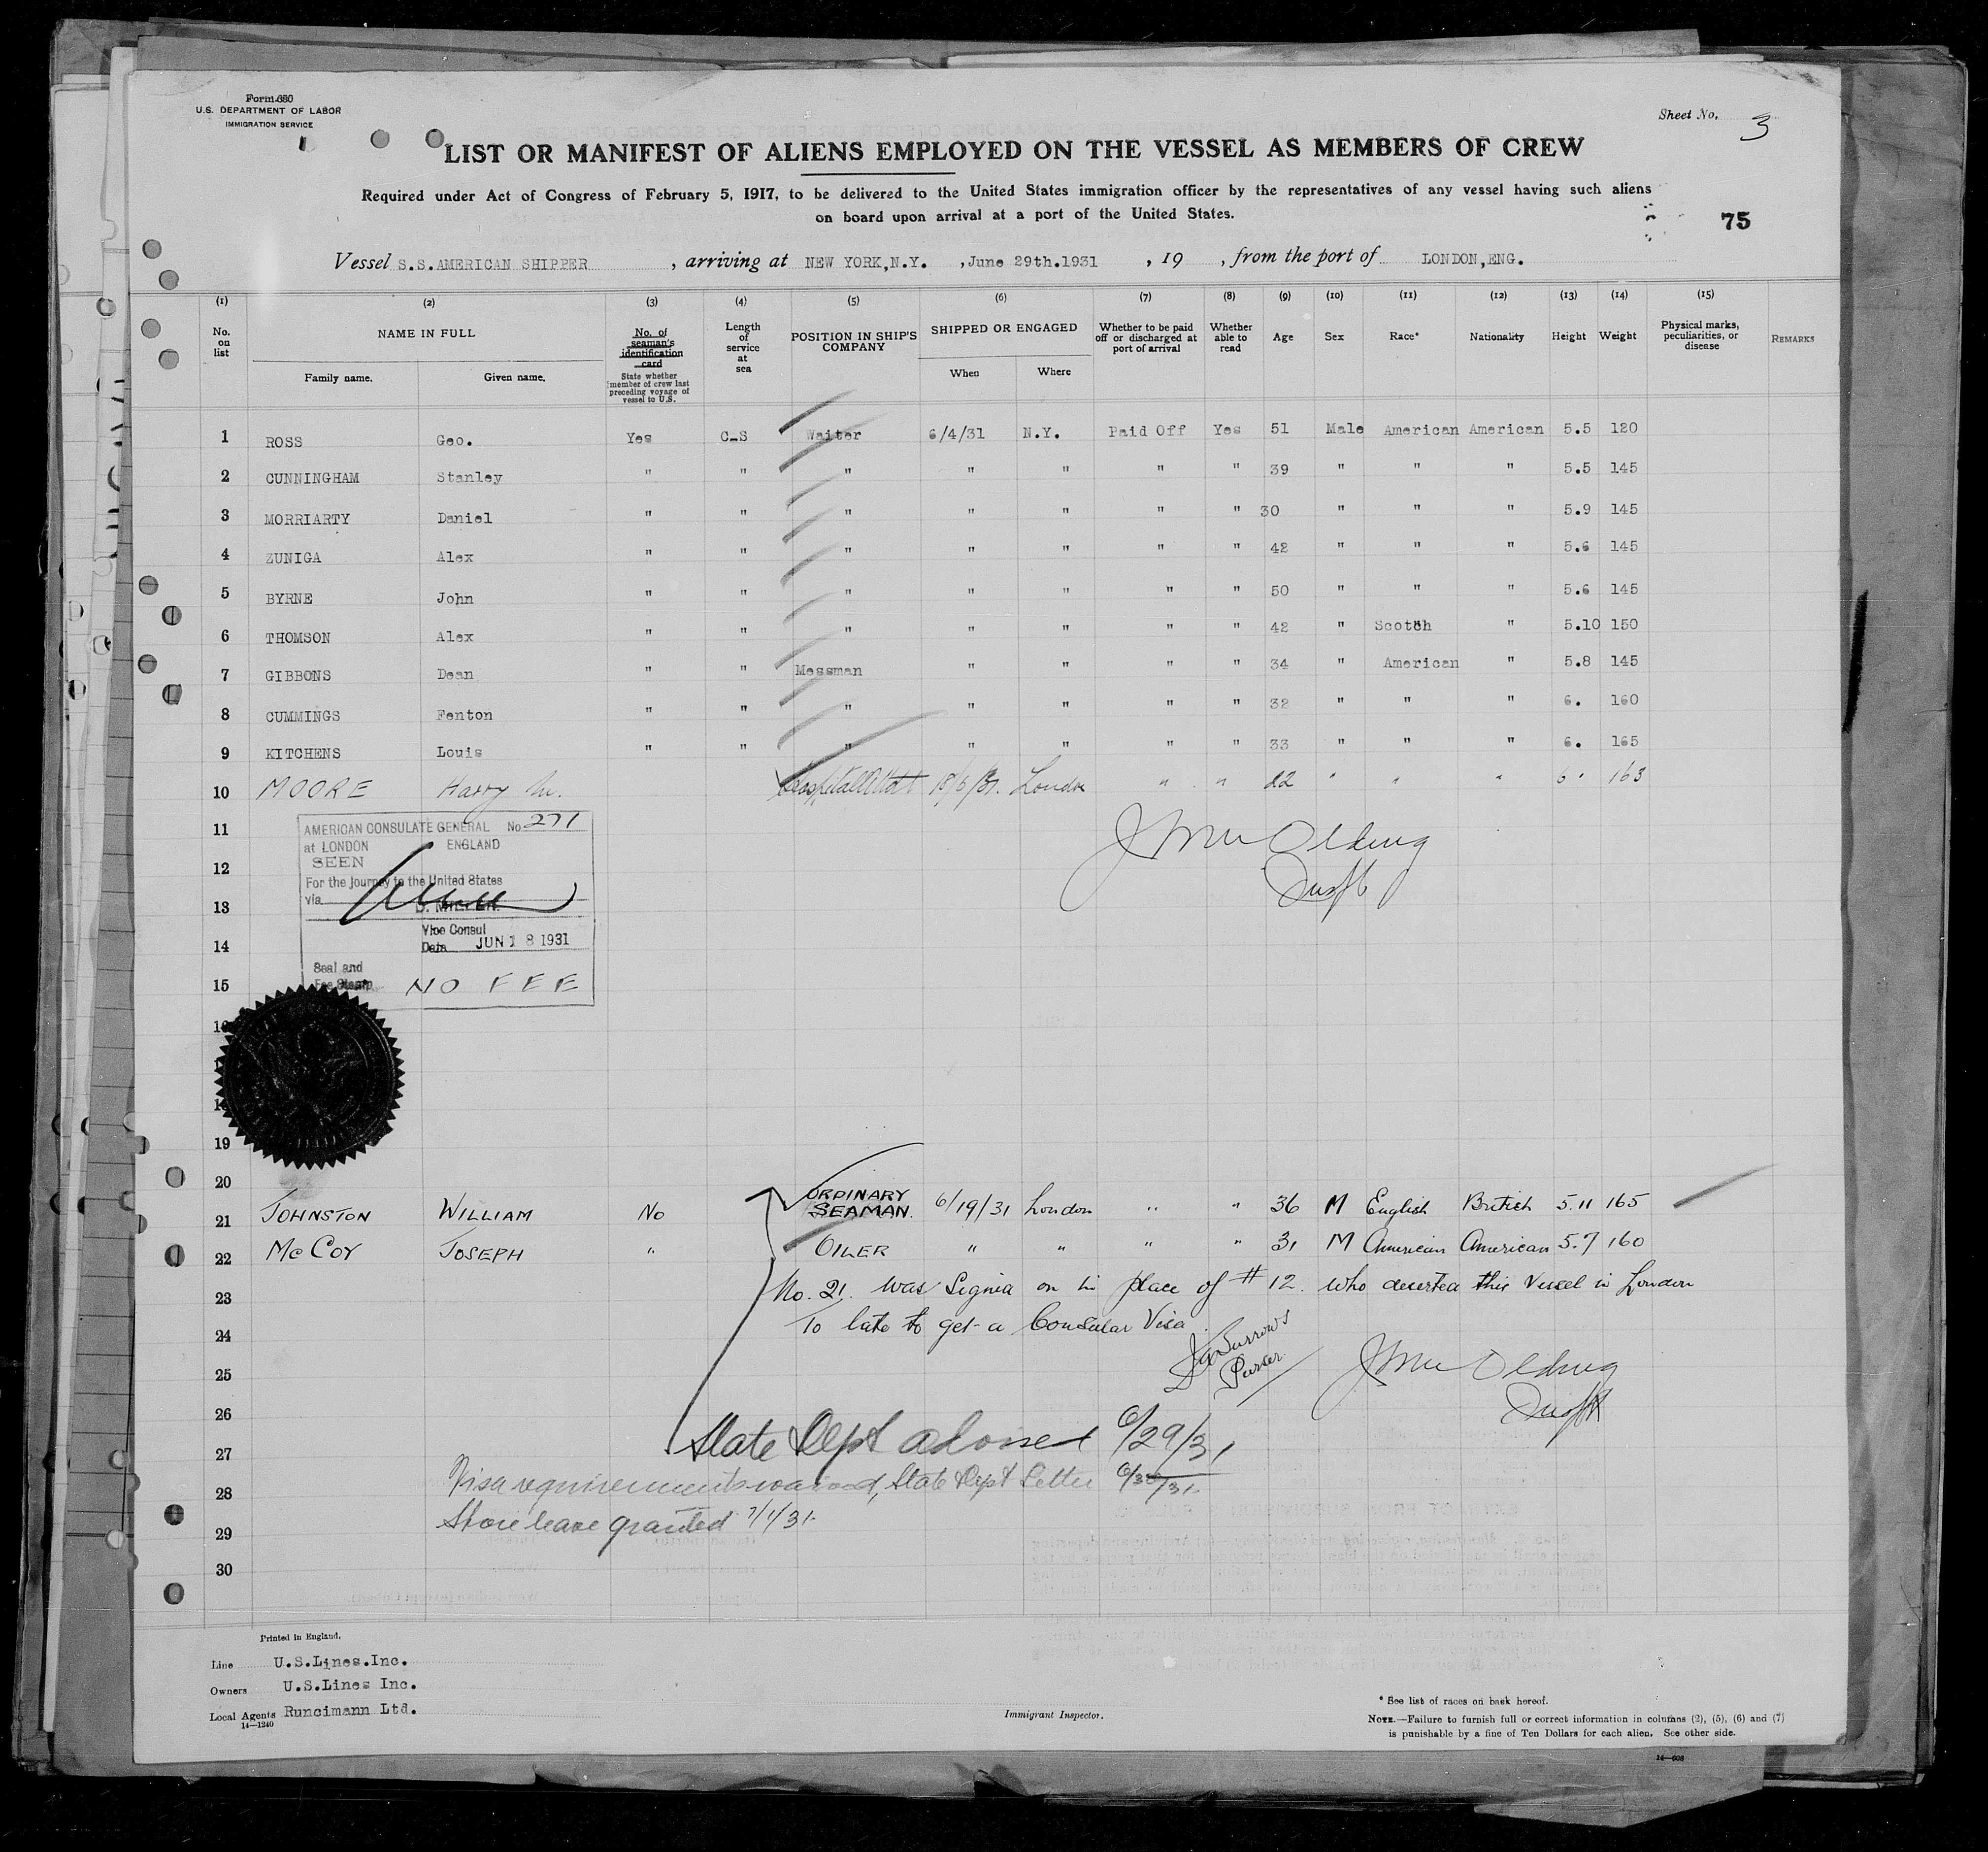 Form 680
U.S. DEPARTMENT OF LABOR
IMMIGRATION SERVICE
Sheet No. 3
LIST OR MANIFEST OF ALIENS EMPLOYED ON THE VESSEL AS MEMBERS OF CREW
Required under Act of Congress of February 5, 1917, to be delivered to the United States immigration officer by the representatives of any vessel having such aliens
on board upon arrival at a port of the United States.
75
Vessel S.S.AMERICAN SHIPPER , arriving at NEW YORK,N.Y. ,June 29th.1931 , 19 , from the port of LONDON,ENG.
(1) (2) (3) (4) (5) (6) (7) (8) (9) (10) (11) (12) (13) (14) (15)
No. on list
NAME IN FULL
Family name. Given name.
No. of seaman's identification card
State whether member of crew last preceding voyage of vessel to U.S.
Length of service at sea
POSITION IN SHIP'S COMPANY
SHIPPED OR ENGAGED
When Where
Whether to be paid off or discharged at port of arrival
Whether able to read
Age Sex Race* Nationality Height Weight
Physical marks, peculiarities, or disease
REMARKS
1 ROSS Geo. Yes C-S Waiter 6/4/31 N.Y. Paid Off Yes 51 Male American American 5.5 120
2 CUNNINGHAM Stanley " " " " " " " 39 " " " 5.5 145
3 MORRIARTY Daniel " " " " " " " 30 " " " 5.9 145
4 ZUNIGA Alex " " " " " " " 42 " " " 5.6 145
5 BYRNE John " " " " " " " 50 " " " 5.6 145
6 THOMSON Alex " " " " " " " 42 " Scotch " 5.10 150
7 GIBBONS Dean " " Messman " " " " 34 " American " 5.8 145
8 CUMMINGS Fenton " " " " " " " 32 " " " 6. 160
9 KITCHENS Louis " " " " " " " 33 " " " 6. 165
10 MOORE Harry W. Hospital Attdt 18/6/31. London " " 22 " " " 6' 163
11
AMERICAN CONSULATE GENERAL No 271
at LONDON ENGLAND
SEEN
12
For the journey to the United States
via
13
D. MILLER.
Vice Consul
14
Date JUN 18 1931
Seal and
Fee Stamp
15 NO FEE
19
20
21 JOHNSTON WILLIAM No ORDINARY SEAMAN. 6/19/31 London " " 36 M English British 5.11 165
22 McCOY JOSEPH " OILER " " " " 31 M American American 5.7 160
23 No. 21. was Signed on in place of # 12. who deserted this Vessel in London
24 To late to get a Consular Visa
Burrows
Purser.
25
26
27 State Dept advised 6/29/31
28 Visa requirements waived, State Dept Letter 6/30/31.
29 Shore leave granted 7/1/31.
30
Printed in England.
Line U.S.Lines.Inc.
Owners U.S.Lines Inc.
Local Agents Runcimann Ltd.
14—1240
Immigrant Inspector.
* See list of races on back hereof.
NOTE.—Failure to furnish full or correct information in columns (2), (5), (6) and (7)
is punishable by a fine of Ten Dollars for each alien. See other side.
14—608